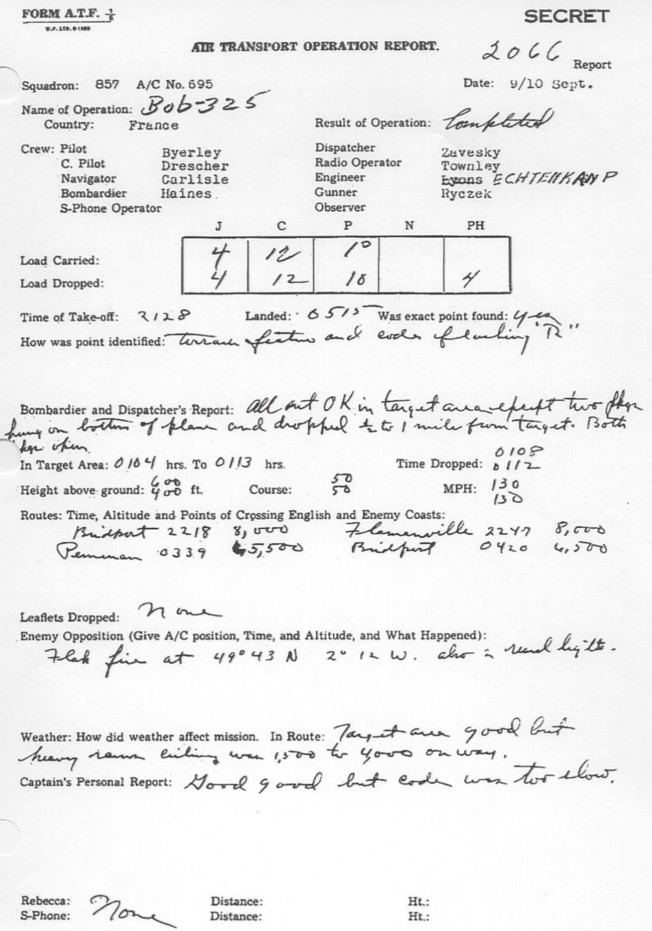 FORM A.T.F. 1/2
SECRET
AIR TRANSPORT OPERATION REPORT.
2066 Report
Squadron: 857 A/C No. 695 Date: 9/10 Sept.
Name of Operation: Bob-325
Country: France Result of Operation: Completed
Crew: Pilot Byerley Dispatcher Zavesky
C. Pilot Drescher Radio Operator Townley
Navigator Carlisle Engineer Lyons ECHTENKAMP
Bombardier Haines Gunner Ryczek
S-Phone Operator Observer
J C P N PH
Load Carried: 4 12 10
Load Dropped: 4 12 10 4
Time of Take-off: 2128 Landed: 0515 Was exact point found: yes
How was point identified: terrain feature and code flashing "R"
Bombardier and Dispatcher's Report: All out OK in target area except two pkgs
hung on bottom of plane and dropped 1/2 to 1 mile from target. Both
open.
0108
In Target Area: 0104 hrs. To 0113 hrs. Time Dropped: 0112
600 50 130
Height above ground: 400 ft. Course: 50 MPH: 130
Routes: Time, Altitude and Points of Crossing English and Enemy Coasts:
Bridport 2218 8,000 Flamanville 2247 8,000
0339 5,500 Bridport 0420 6,500
Leaflets Dropped: None
Enemy Opposition (Give A/C position, Time, and Altitude, and What Happened):
Flak fire at 49° 43 N 2° 12 W. also lights.
Weather: How did weather affect mission. In Route: Target area good but
heavy rain ceiling was 1,500 to 4000 on way.
Captain's Personal Report: Good good but code was too slow.
Rebecca: Distance: Ht.:
S-Phone: None Distance: Ht.: